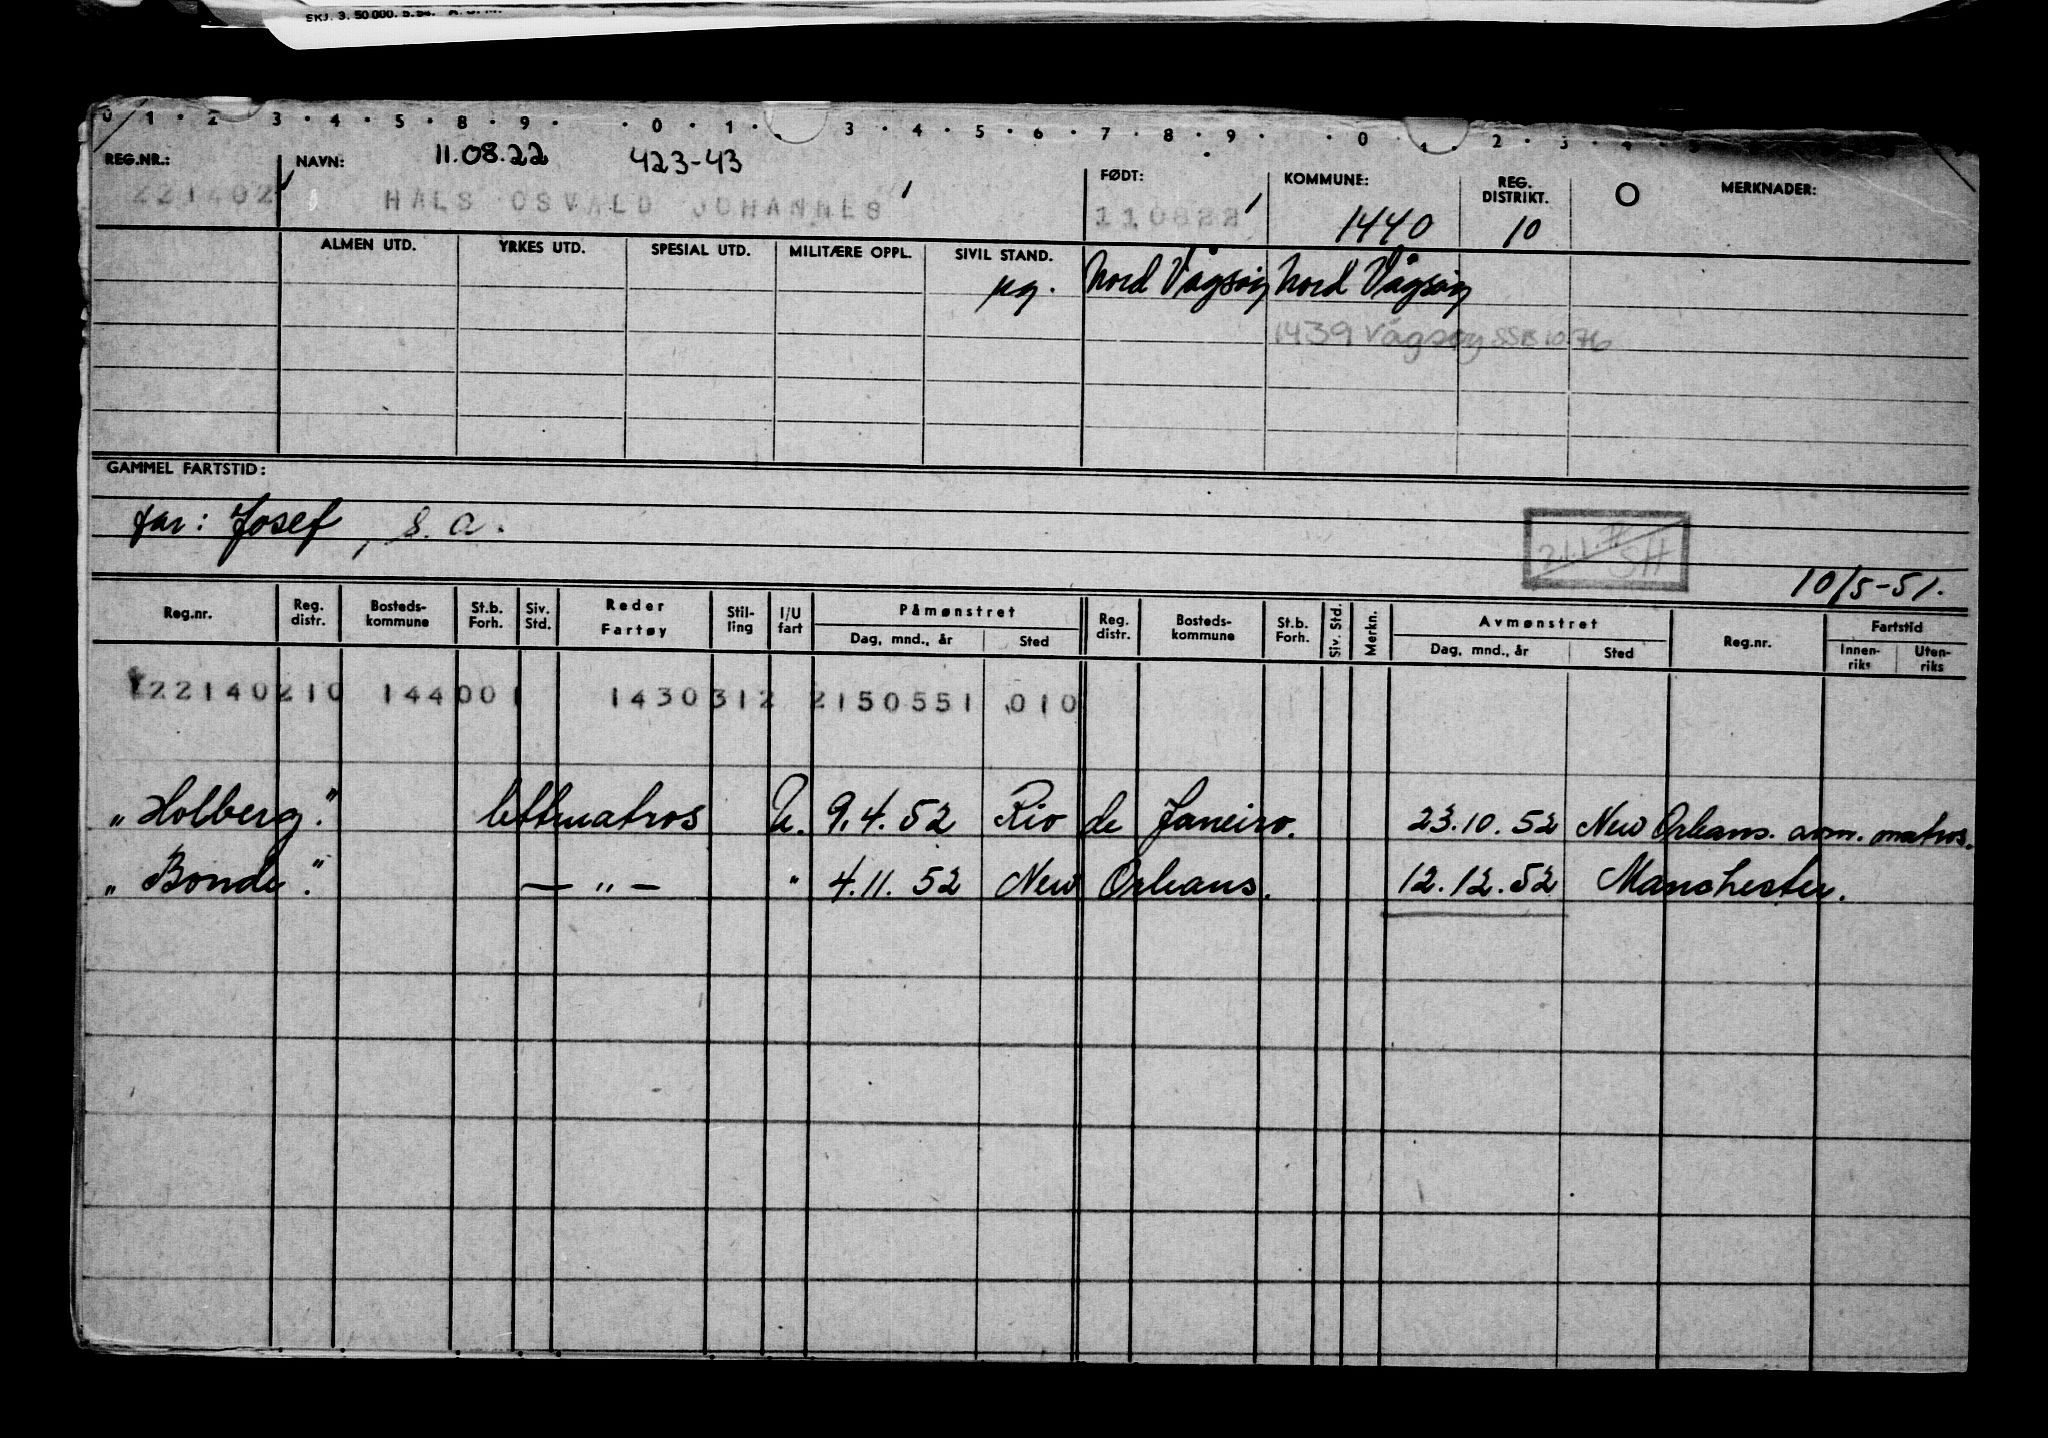 SKJ. 3. 50 000. 5. 54.
0 1 2 3 4 5 8 9 0 1 3 4 5 6 7 8 9 0 1 2 3 4
REG.NR.: NAVN: 11.08.22 423-43 FØDT: KOMMUNE: REG. DISTRIKT. O MERKNADER:
221402 HALS OSVALD JOHANNES 110822 1440 10
ALMEN UTD. YRKES UTD. SPESIAL UTD. MILITÆRE OPPL. SIVIL STAND.
ug. Nord Vågsøy Nord Vågsøy
1439 Vågsøy SSB 10.76
GAMMEL FARTSTID:
far: Josef, s.a.
SH
10/5-51.
Reg.nr. Reg. distr. Bosteds-kommune St.b. Forh. Siv. Std. Reder Fartøy Stil-ling I/U fart Påmønstret Dag, mnd., år Sted Reg. distr. Bosteds-kommune St.b. Forh. Siv. Std. Merkn. Avmønstret Dag, mnd., år Sted Reg.nr. Fartstid Innen-riks Uten-riks
22140210 144001 1430312 2150551 010
"Holberg". lettmatros U. 9.4.52 Rio de Janeiro. 23.10.52 New Orleans. avm. matros.
"Bonde". — " — " 4.11.52 New Orleans. 12.12.52 Manchester.